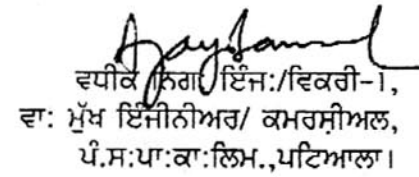 ਵਧੀਕ ਨਿਗ ਇੰਜ:/ਵਿਕਰੀ-1,
ਵਾ: ਮੁੱਖ ਇੰਜੀਨੀਅਰ/ ਕਮਰਸ਼ੀਅਲ,
ਪੰ.ਸ:ਪਾ:ਕਾ:ਲਿਮ.,ਪਟਿਆਲਾ।